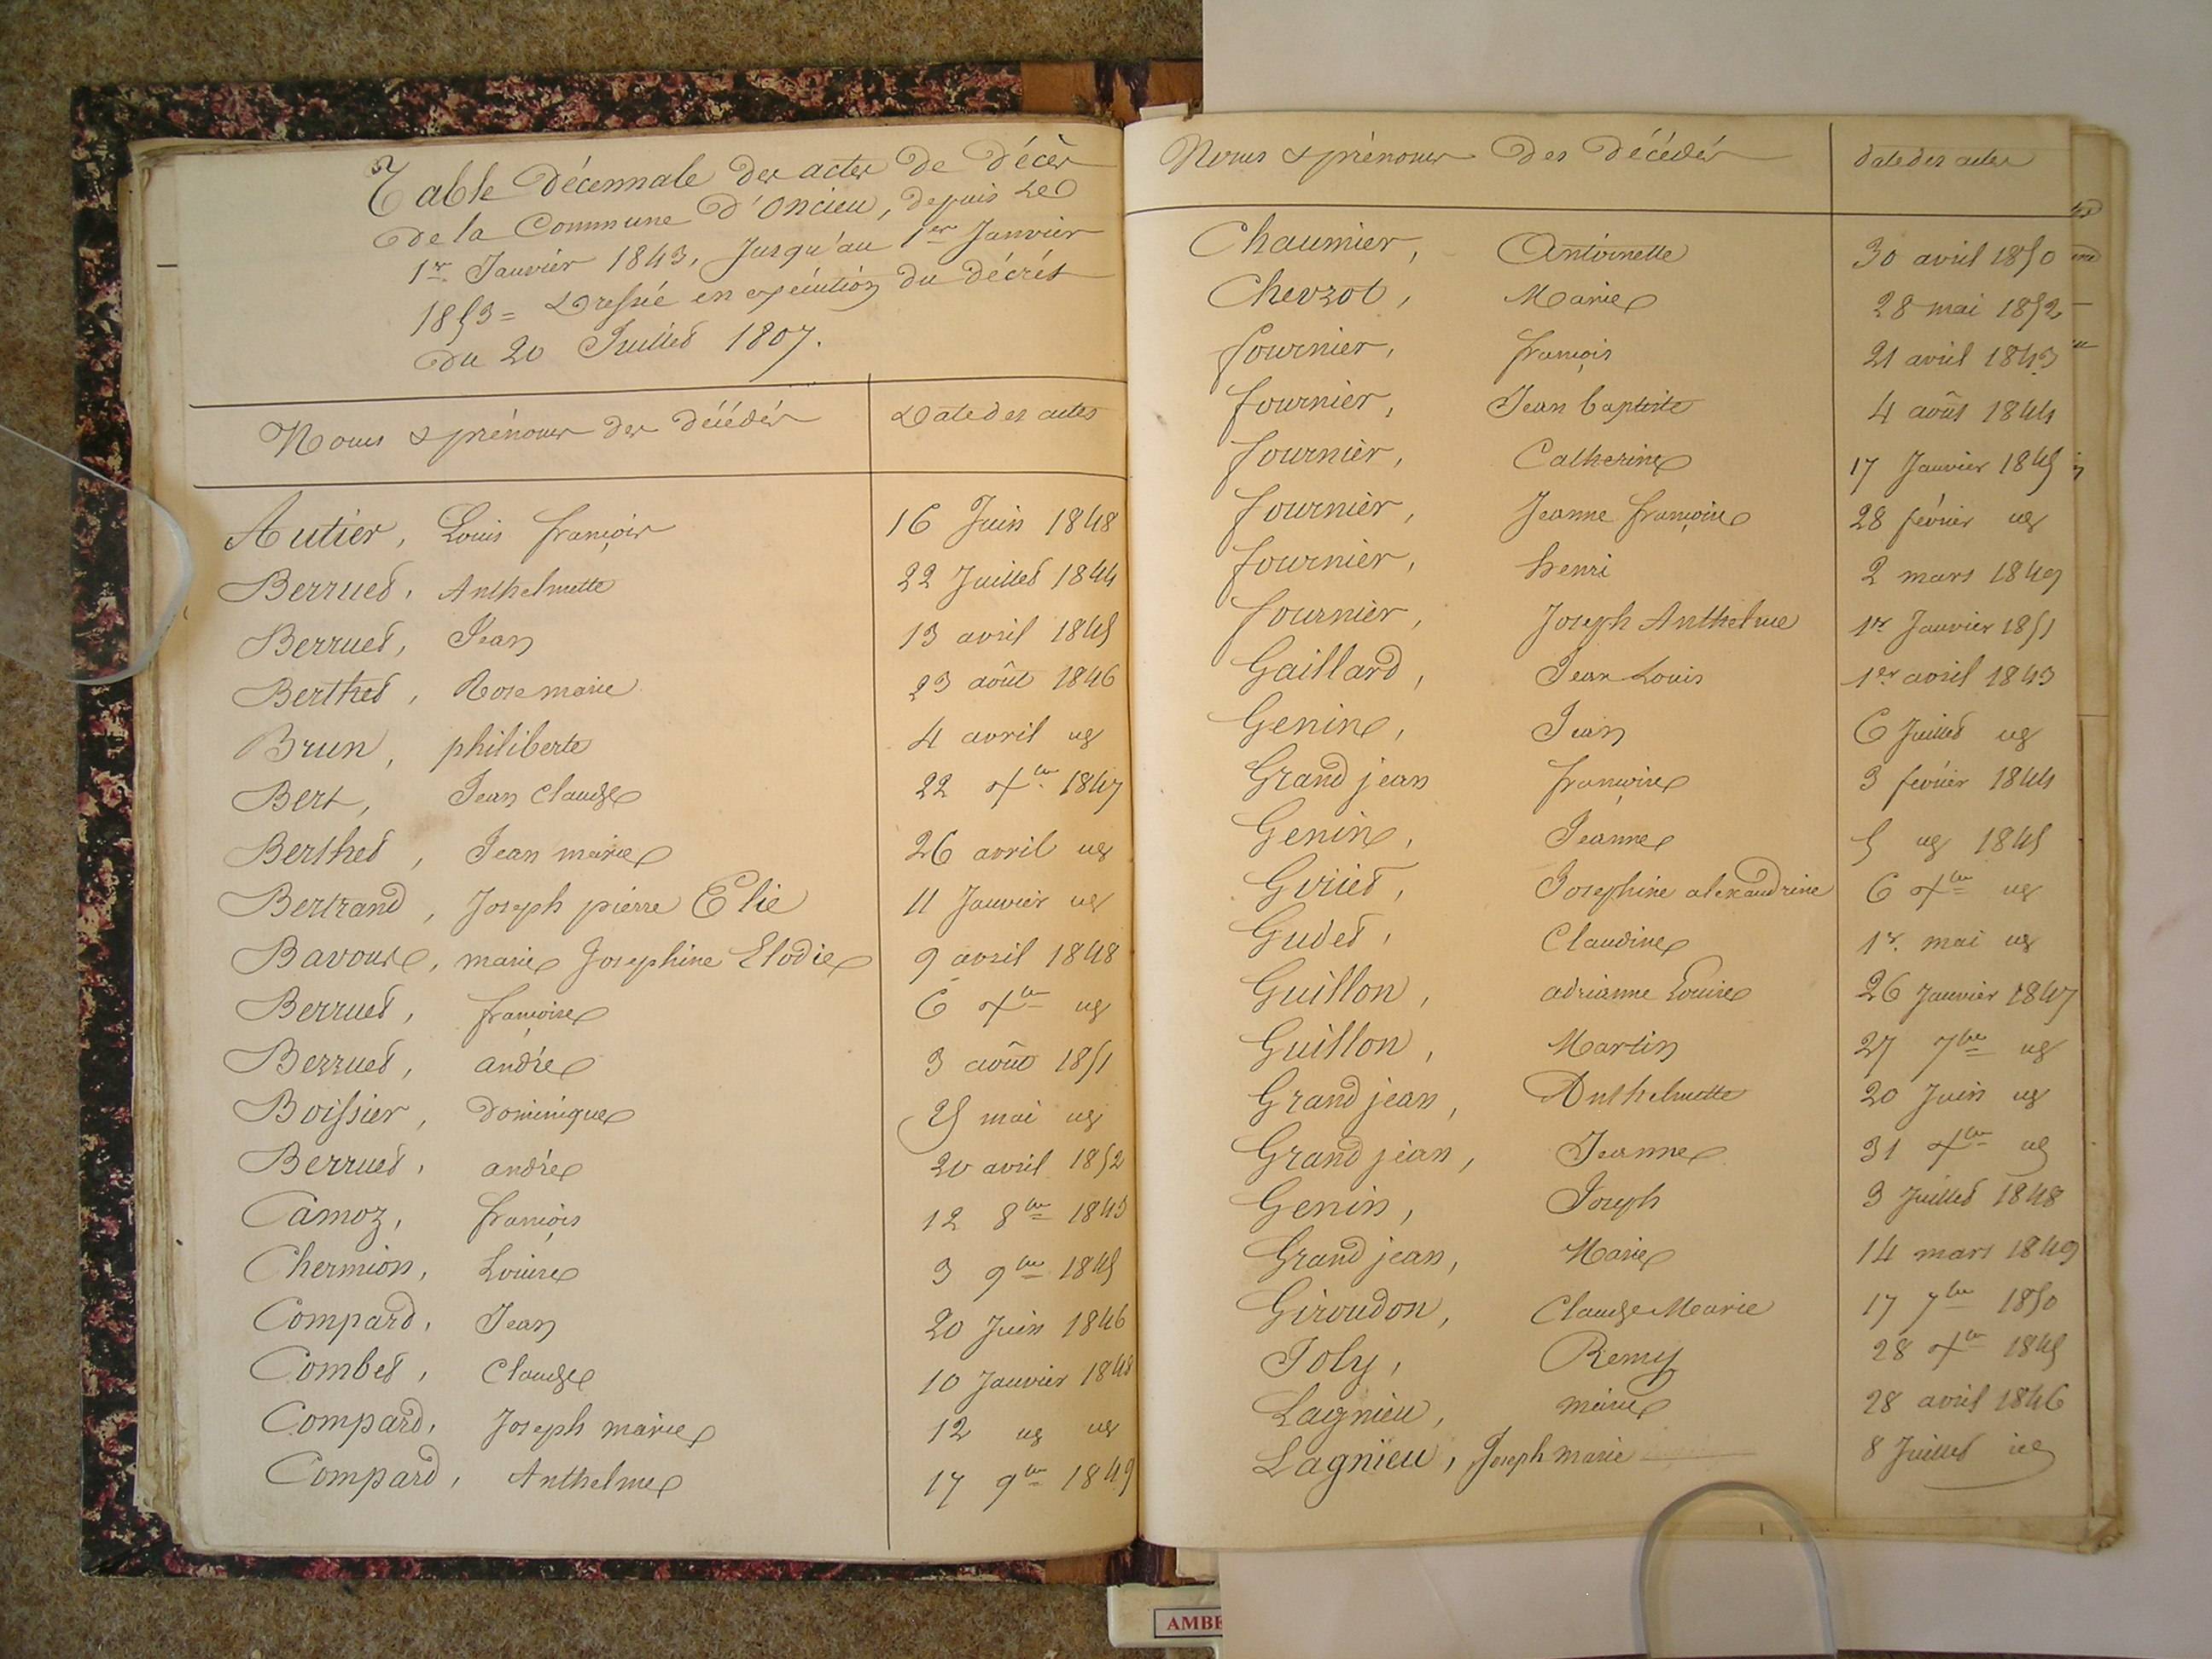 Table décennale des actes de décès
de la Commune d'Oncieu, depuis le
1er Janvier 1843, Jusqu'au 1er Janvier
1853 = Dressée en exécution du décrét
du 20 Juillet 1807.
Noms & prénoms des décédés Date des actes
Autier, Louis françois 16 Juin 1848
Berruet, Anthelmette 22 Juillet 1844
Berruet, Jean 13 avril 1845
Berthet, Rose marie 23 août 1846
Brun, philiberte 4 avril id
Bert, Jean Claude 22 Xbre 1847
Berthet, Jean marie 26 avril id
Bertrand, Joseph pierre Elie 11 Janvier id
Bavoux, marie Josephine Elodie 9 avril 1848
Berruet, françoise 6 Xbre id
Berruet, andré 3 août 1851
Boissier, dominique 25 mai id
Berruet, andré 20 avril 1852
Camoz, françois 12 8bre 1843
Chermion, Louise 3 9bre 1845
Compard, Jean 20 Juin 1846
Combet, Claude 10 Janvier 1848
Compard, Joseph marie 12 id id
Compard, Anthelme 17 9bre 1849
Noms & prénoms des décédés date des actes
Chaumier, Antoinette 30 avril 1850
Chevrot, Marie 28 mai 1852
fournier, françois 21 avril 1843
fournier, Jean baptiste 4 août 1844
fournier, Catherine 17 Janvier 1845
fournier, Jeanne françoise 28 février id
fournier, henri 2 mars 1849
fournier, Joseph Anthelme 1er Janvier 1851
Gaillard, Jean Louis 1er avril 1843
Genin, Jean 6 Juillet id
Grand jean françoise 3 février 1844
Genin, Jeanne 5 id 1845
Guriet, Josephine alexandrine 6 Xbre id
Gudet, Claudine 1er mai id
Guillon, adrianne Louise 26 Janvier 1847
Guillon, Martin 27 7bre id
Grand jean, Anthelmette 20 Juin id
Grand jean, Jeanne 31 Xbre id
Genin, Joseph 3 Juillet 1848
Grand jean, Marie 14 mars 1849
Giroudon, Claude Marie 17 7bre 1850
Joly, Remy 28 Xbre 1845
Lagnieu, marie 28 avril 1846
Lagnieu, Joseph marie 8 Juillet id
AMBE